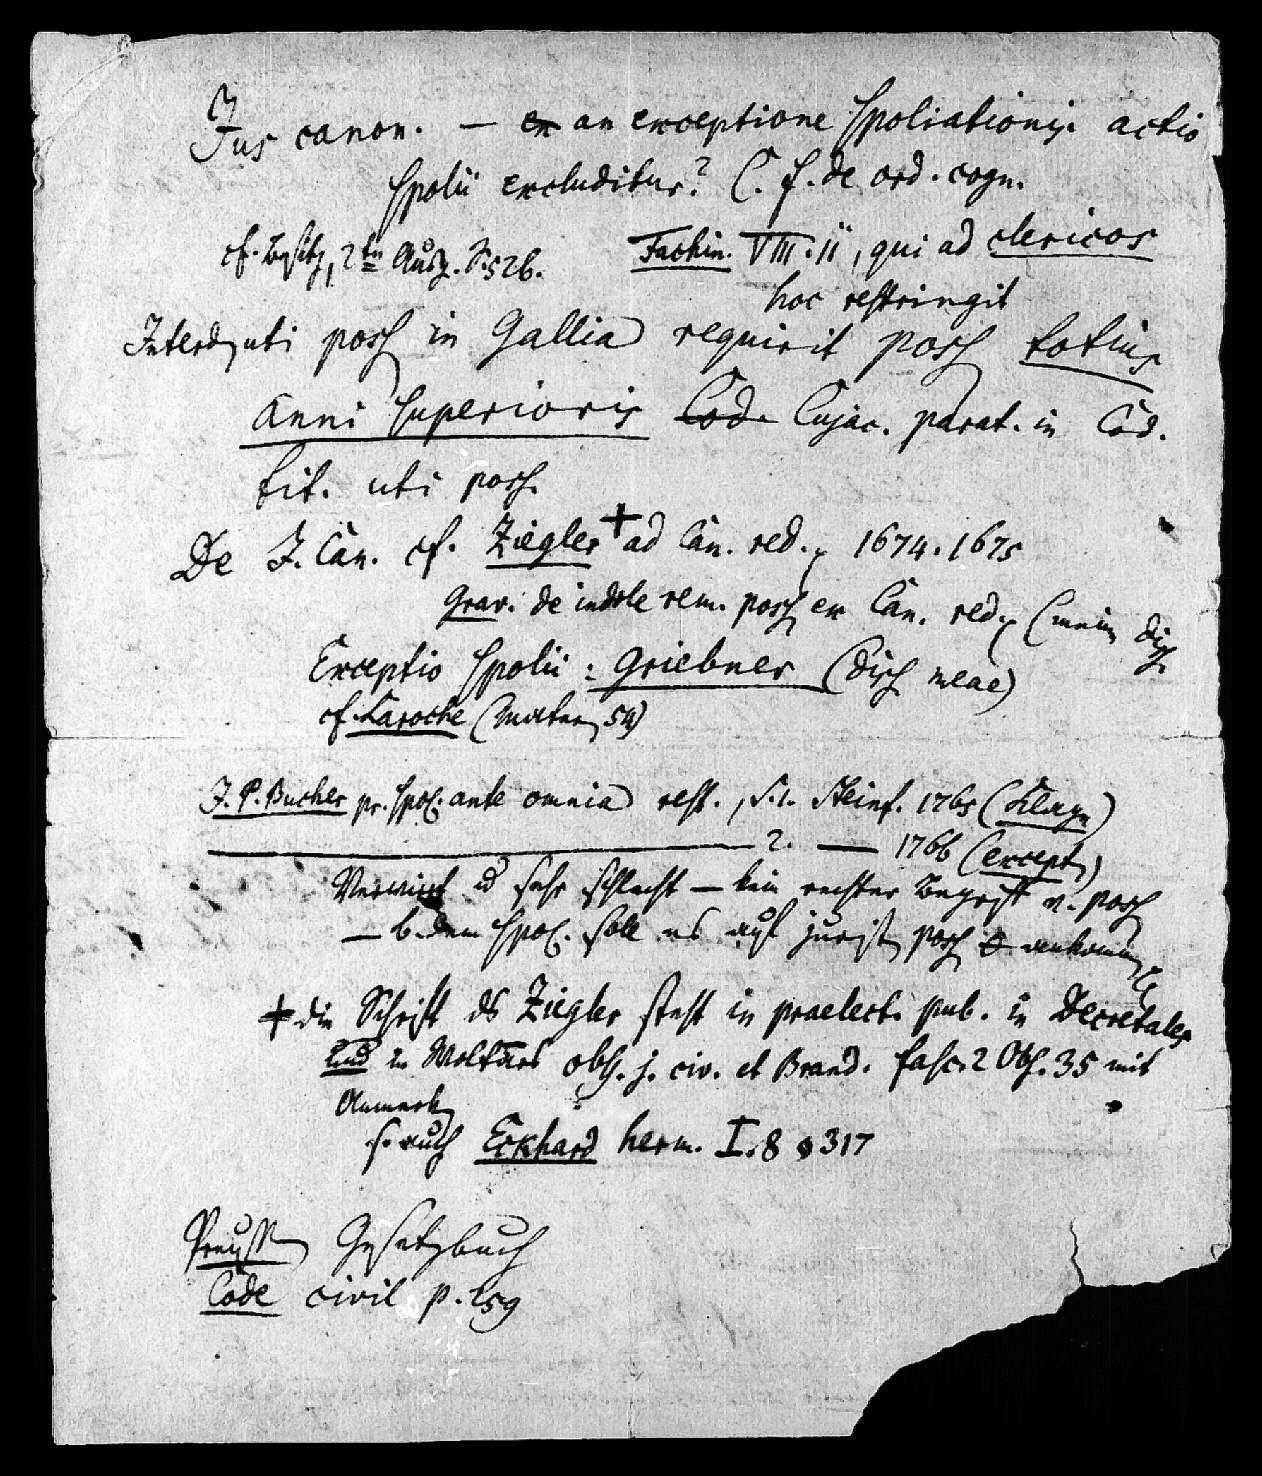 Jus canon. — an exceptione spoliationis actio
spolii excluditur? C. f. de ord. cogn.
cf. Besitz, 2te Ausg. S. 526.
Fachin. VIII. 11, qui ad clericos
hoc restringit
Interd. uti poss in Gallia requirit poss totius
anni superioris Cod. Cujac. parat. in Cod.
tit. uti poss.
De J. Can. cf. Ziegler + ad Can. red. 1674. 1675
Grav. de indole rem. poss ex Can. red. (mein Diss.
Exceptio spolii: Griebner (Diss meae)
cf. Laroche (Matern 54)
J. P. Bucher pr. spol. ante omnia rest., S. 1. Rinf. 1765 (Klage)
2. — 1766 (except)
Verwirrt u sehr schlecht — kein rechter Begriff v. poss
— b. dem spol. soll es auf jurist poss ankommen
+ die Schrift des Ziegler steht in praelect. pub. in Decretales
und in Woltärs obs. j. civ. et Brand. fasc. 2 Obs. 35 mit
Anmerk
s. auch Eckhard herm. I. 8 § 317
Preuss Gesetzbuch
Code civil p. 159